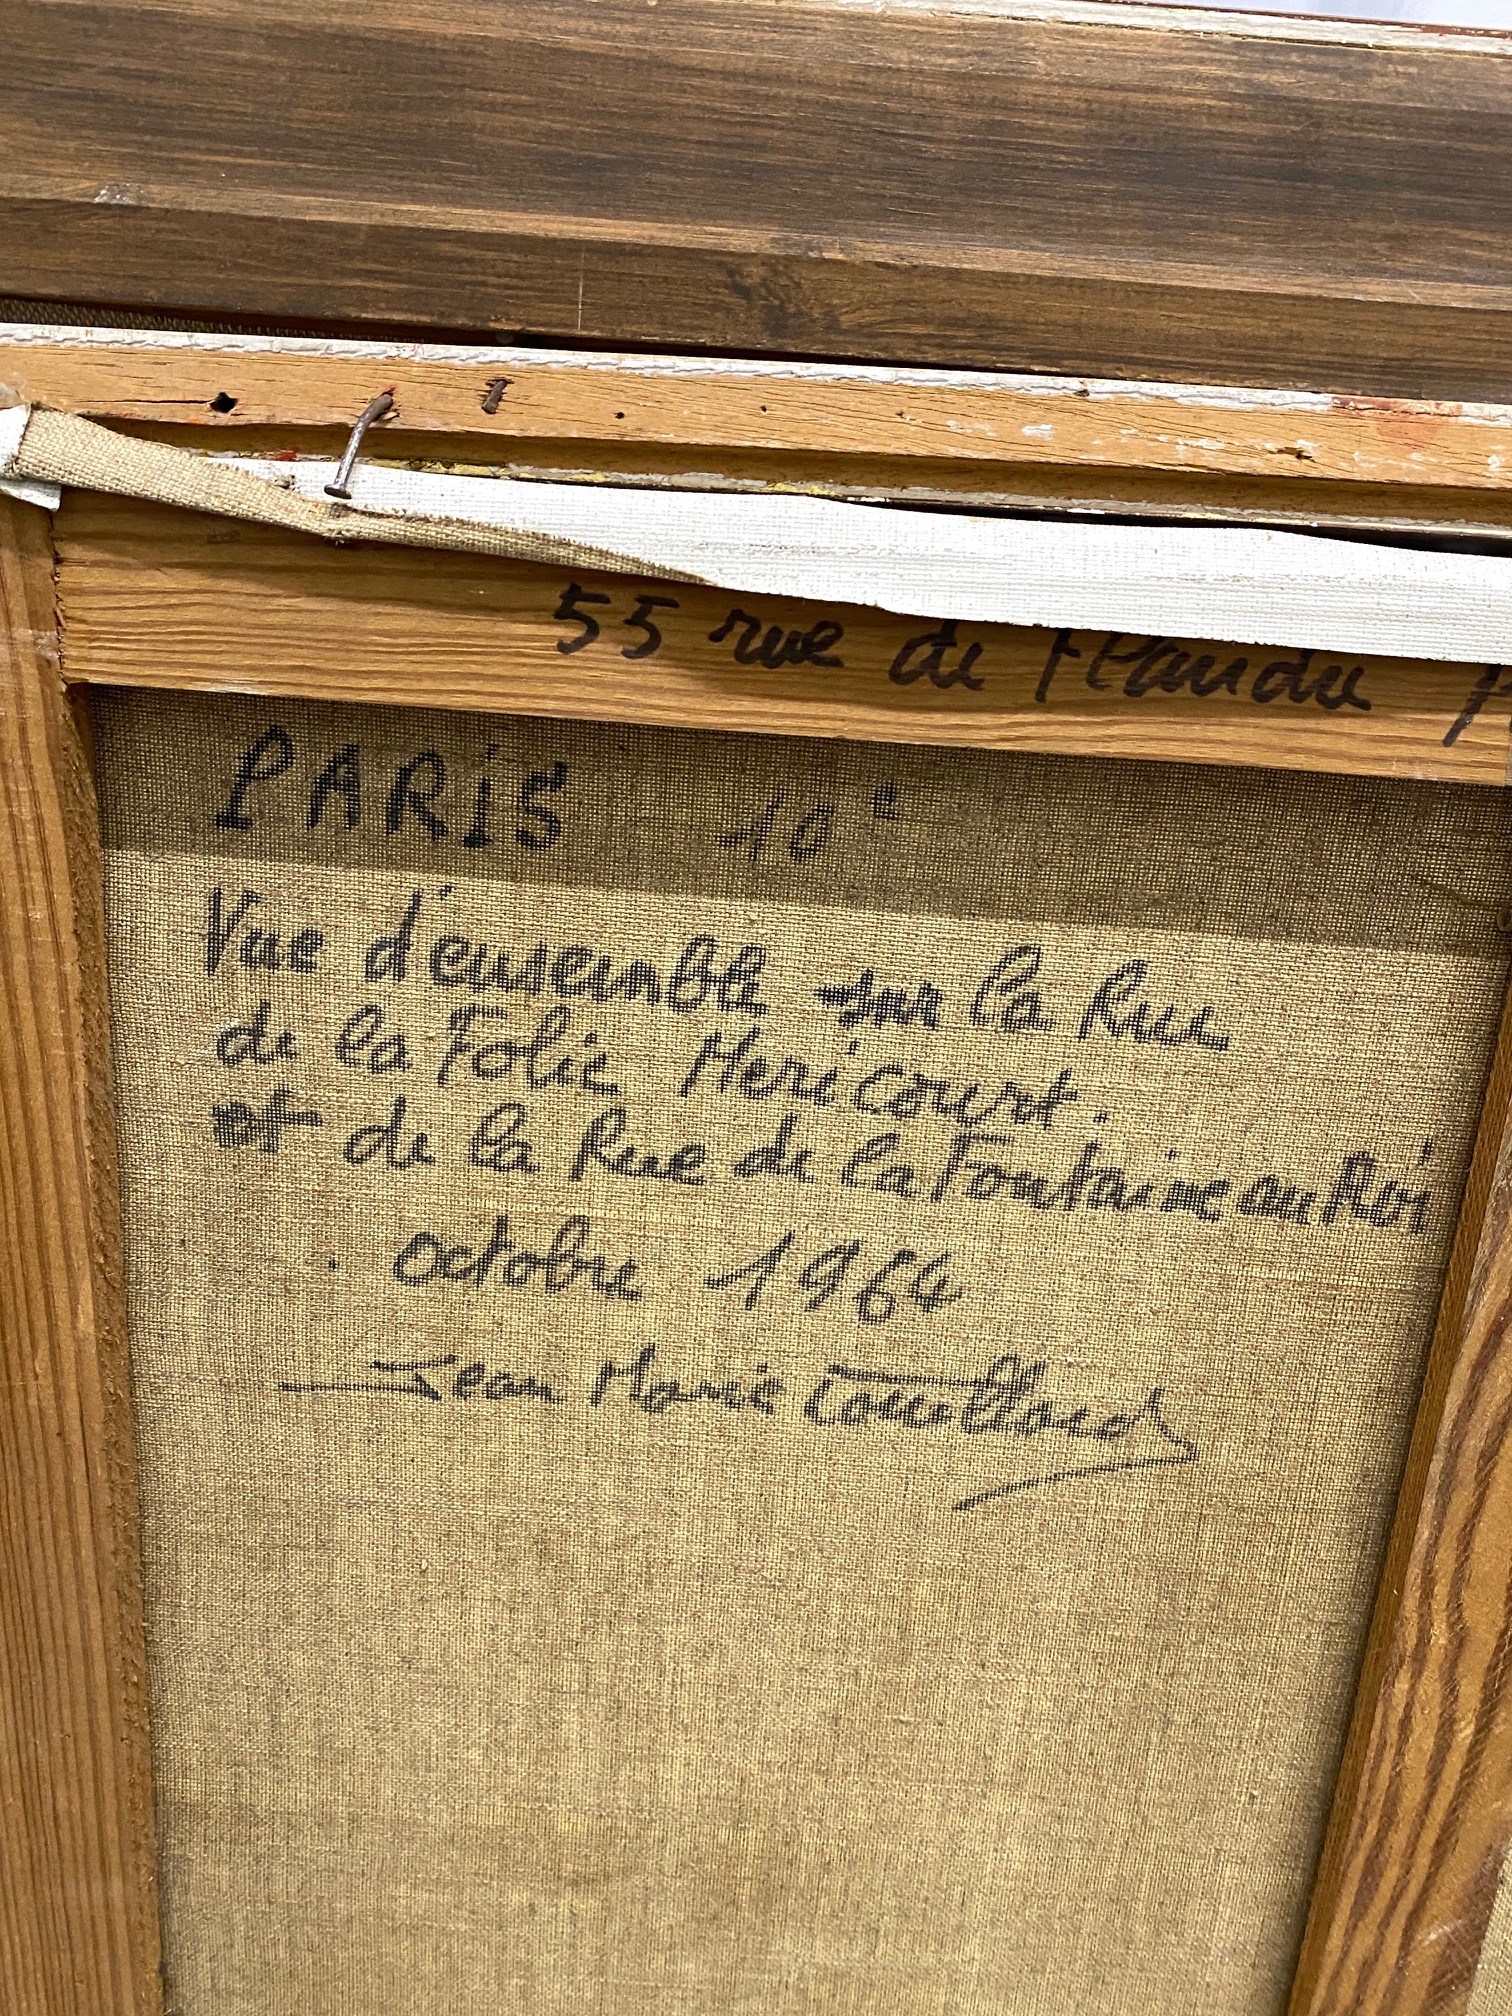 55 rue de Flandre
PARIS 10e
Vue d'ensemble sur la Rue
de la Folie Hericourt.
et de la Rue de la Fontaine au Roi
. octobre 1964
Jean Marie Touillard